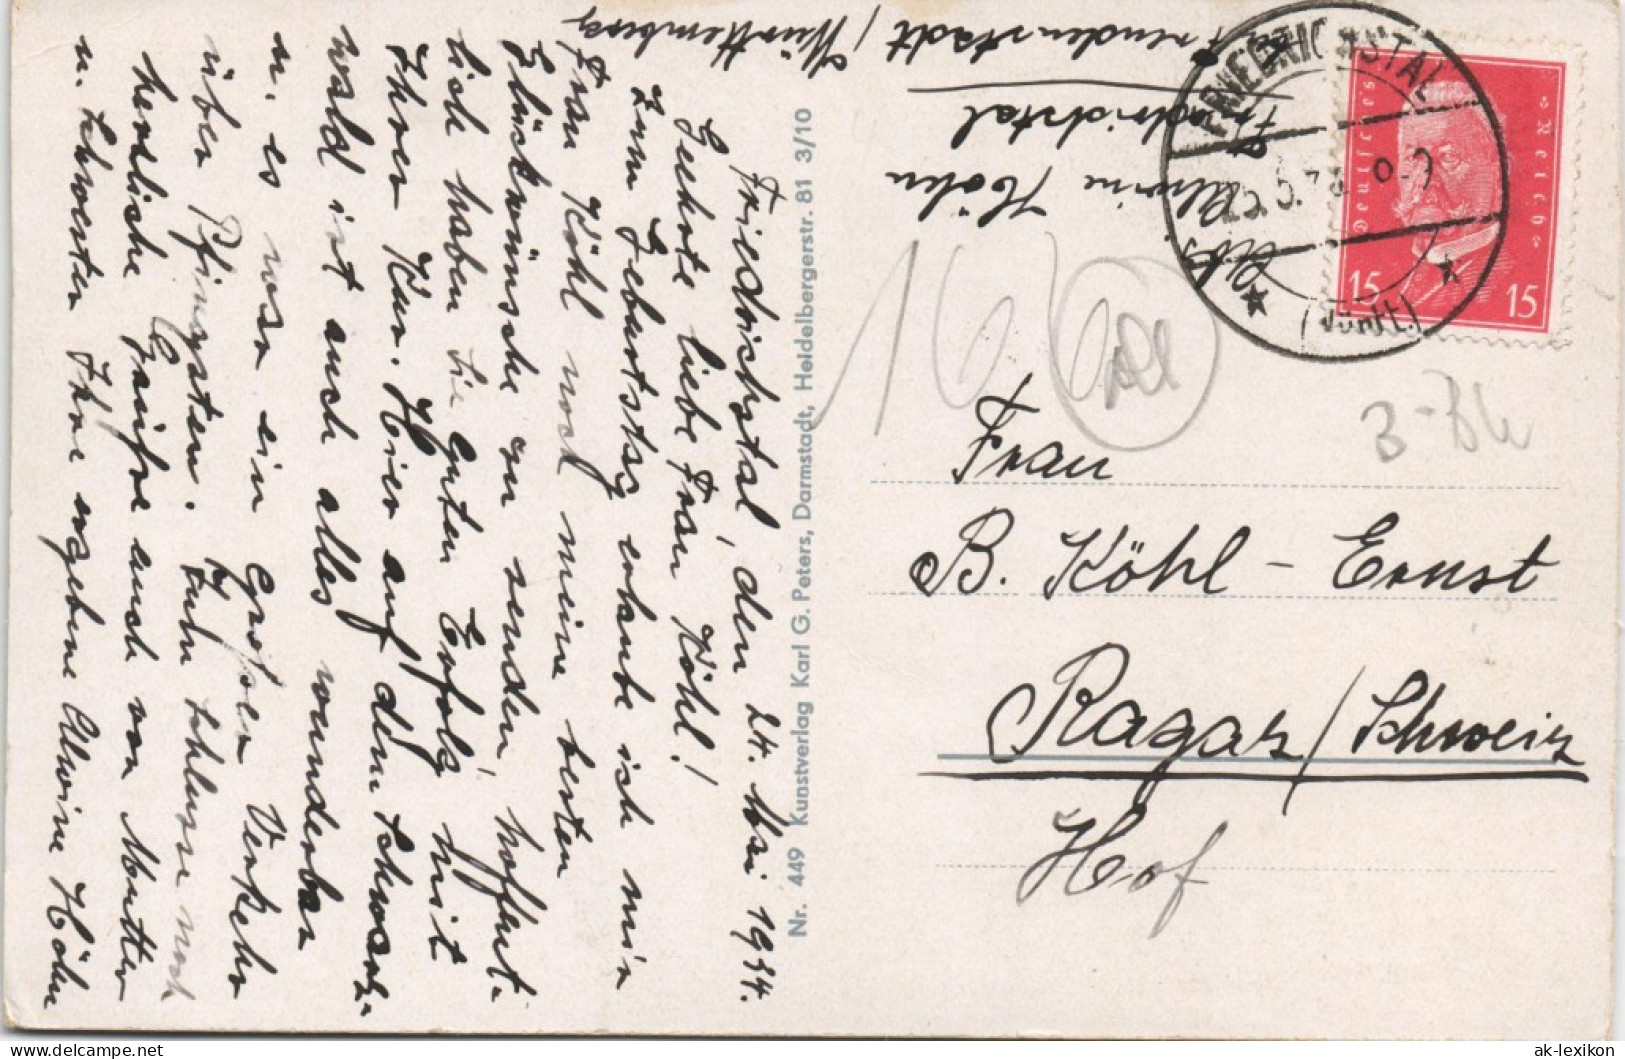 Friedrichstal, den 24. Mai 1934.
Geehrte liebe Frau Köhl!
Zum Geburtstag erlaube ich mir
Frau Köhl noch meine besten
Glückwünsche zu senden, hoffent-
lich haben Sie guten Erfolg mit
Ihrer Kur. Hier auf dem Schwarz-
wald ist auch alles wunderbar
u. es war ein grosser Verkehr
über Pfingsten. Zum Schlusse noch
herzliche Grüsse auch von Mutter
u. Schwester Ihre ergebene Alwine Höhn
Abs. Alwine Höhn
Friedrichstal
Freudenstadt / Württemberg
Nr. 449 Kunstverlag Karl G. Peters, Darmstadt, Heidelbergerstr. 81 3/10
FRIEDRICHSTAL
(Württ.)
Deutsches Reich
15 15
166
B-Bl
Frau
B. Köhl - Ernst
Ragaz / Schweiz
Hof
ak-lexikon